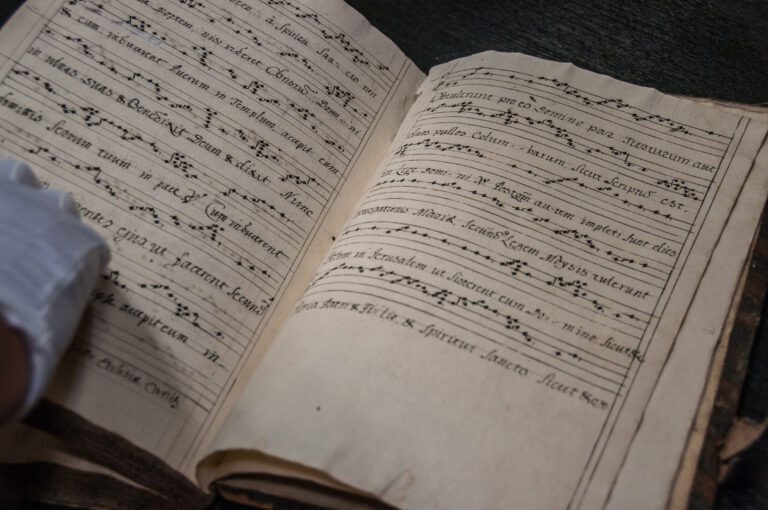 à Spiritu San- cto non
nisi videret Christum Domi- ni
& cum inducerent Puerum in Templum, accepit eum
in ulnas suas & Benedixit Deum & dixit Nunc
Servum tuum in pace ℣ Cum inducerent
ut facerent secundū
accepit eum in
Ecclesia
Obtulerunt pro eo Domino par Turturum aut
duos pullos Colum- barum sicut scriptū est
in Lege Domi- ni ℣ au-tem impleti sunt dies
Mariæ secundū Legem Moysis tulerunt
in Jerusalem ut sisterent eum Do- mino sicut
Patri & Filio & Spiritui Sancto sicut